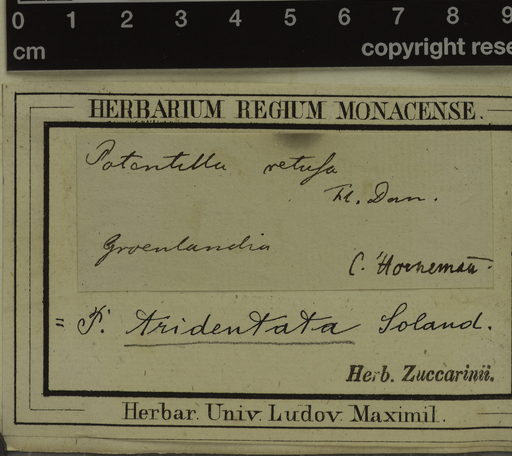 0 1 2 3 4 5 6 7 8 9
cm
copyright rese
HERBARIUM REGIUM MONACENSE.
Potentilla retusa
Fl. Dan.
Groenlandia
C. Horneman.
= P. tridentata Soland.
Herb. Zuccarinii.
Herbar. Univ. Ludov. Maximil.